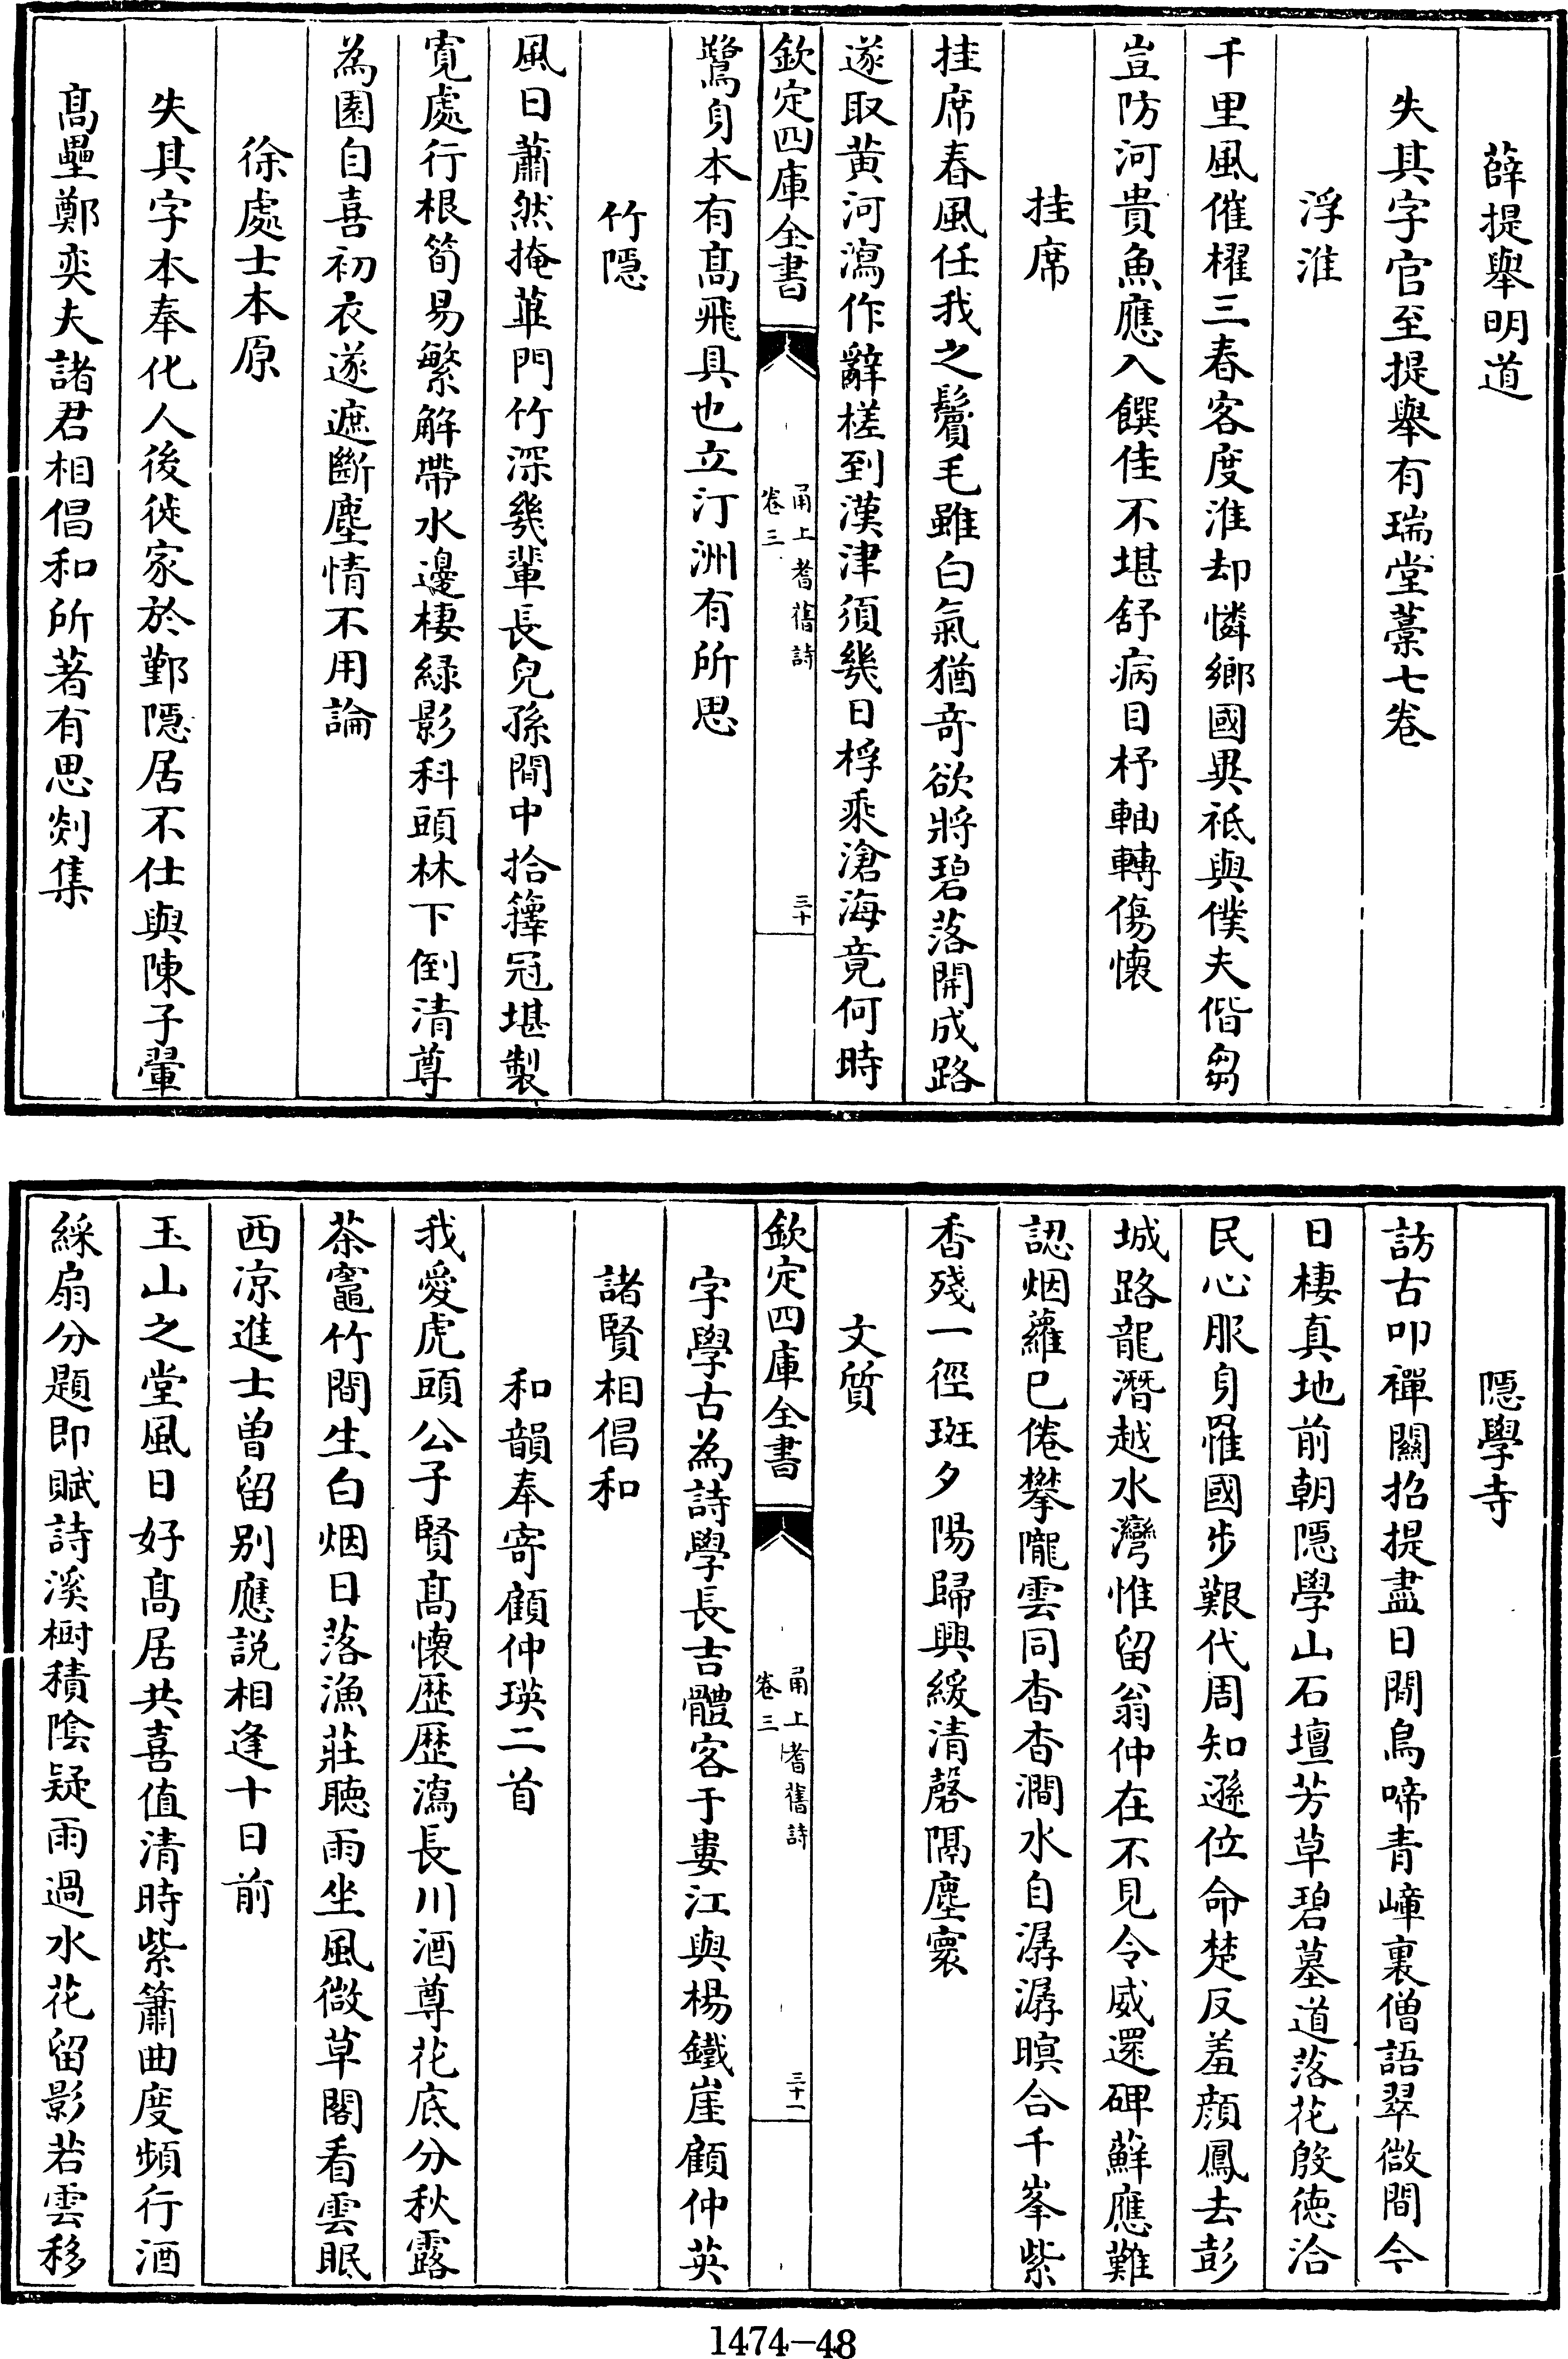 薛提舉明道
失其字官至提舉有瑞堂藁七卷
浮淮
千里風催櫂三春客度淮却憐鄉國異祇與僕夫偕芻
豈防河貴魚應入饌佳不堪舒病目杼軸轉傷懷
挂席
挂席春風任我之鬢毛雖白氣猶奇欲將碧落開成路
遂取黄河瀉作辭槎到漢津須幾日桴乘滄海竟何時
欽定四庫全書
甬上耆舊詩
卷三
三十
鷺身本有髙飛具也立汀洲有所思
竹隱
風日蕭然掩蓽門竹深幾輩長兒孫閒中拾籜冠堪製
寛處行根筍易繁解帶水邊棲緑影科頭林下倒清尊
為園自喜初衣遂遮斷塵情不用論
徐處士本原
失其字本奉化人後徙家於鄞隱居不仕與陳子翬
髙壘鄭奕夫諸君相倡和所著有思剡集
隱學寺
訪古叩禪關招提盡日閒鳥啼青嶂裏僧語翠微間今
日棲真地前朝隱學山石壇芳草碧墓道落花殷徳洽
民心服身罹國步艱代周知遜位命楚反羞顔鳳去彭
城路龍潛越水灣惟留翁仲在不見令威還碑蘚應難
認烟蘿已倦攀隴雲同杳杳澗水自潺潺暝合千峯紫
香殘一徑斑夕陽歸興緩清磬隔塵寰
文質
欽定四庫全書
甬上耆舊詩
卷三
三十一
字學古為詩學長吉體客于婁江與楊鐵崖顧仲英
諸賢相倡和
和韻奉寄顧仲瑛二首
我愛虎頭公子賢髙懷歴歴瀉長川酒尊花底分秋露
茶竈竹間生白烟日落漁莊聴雨坐風微草閣看雲眠
西凉進士曾留别應説相逢十日前
玉山之堂風日好髙居共喜值清時紫簫曲度頻行酒
綵扇分題即賦詩溪樹積陰疑雨過水花留影若雲移
1474-48